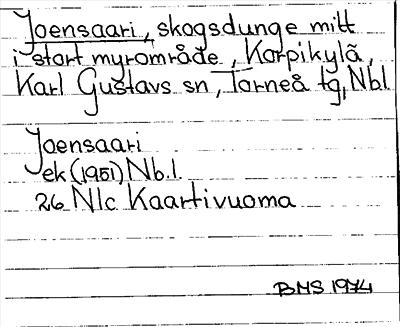 Joensaari, skogsdunge mitt
i stort myrområde, Korpikylä,
Karl Gustavs sn, Torneå tg, Nbl.
Joensaari
ek (1951) Nb.l.
26 Nlc Kaartivuoma
BMS 1974